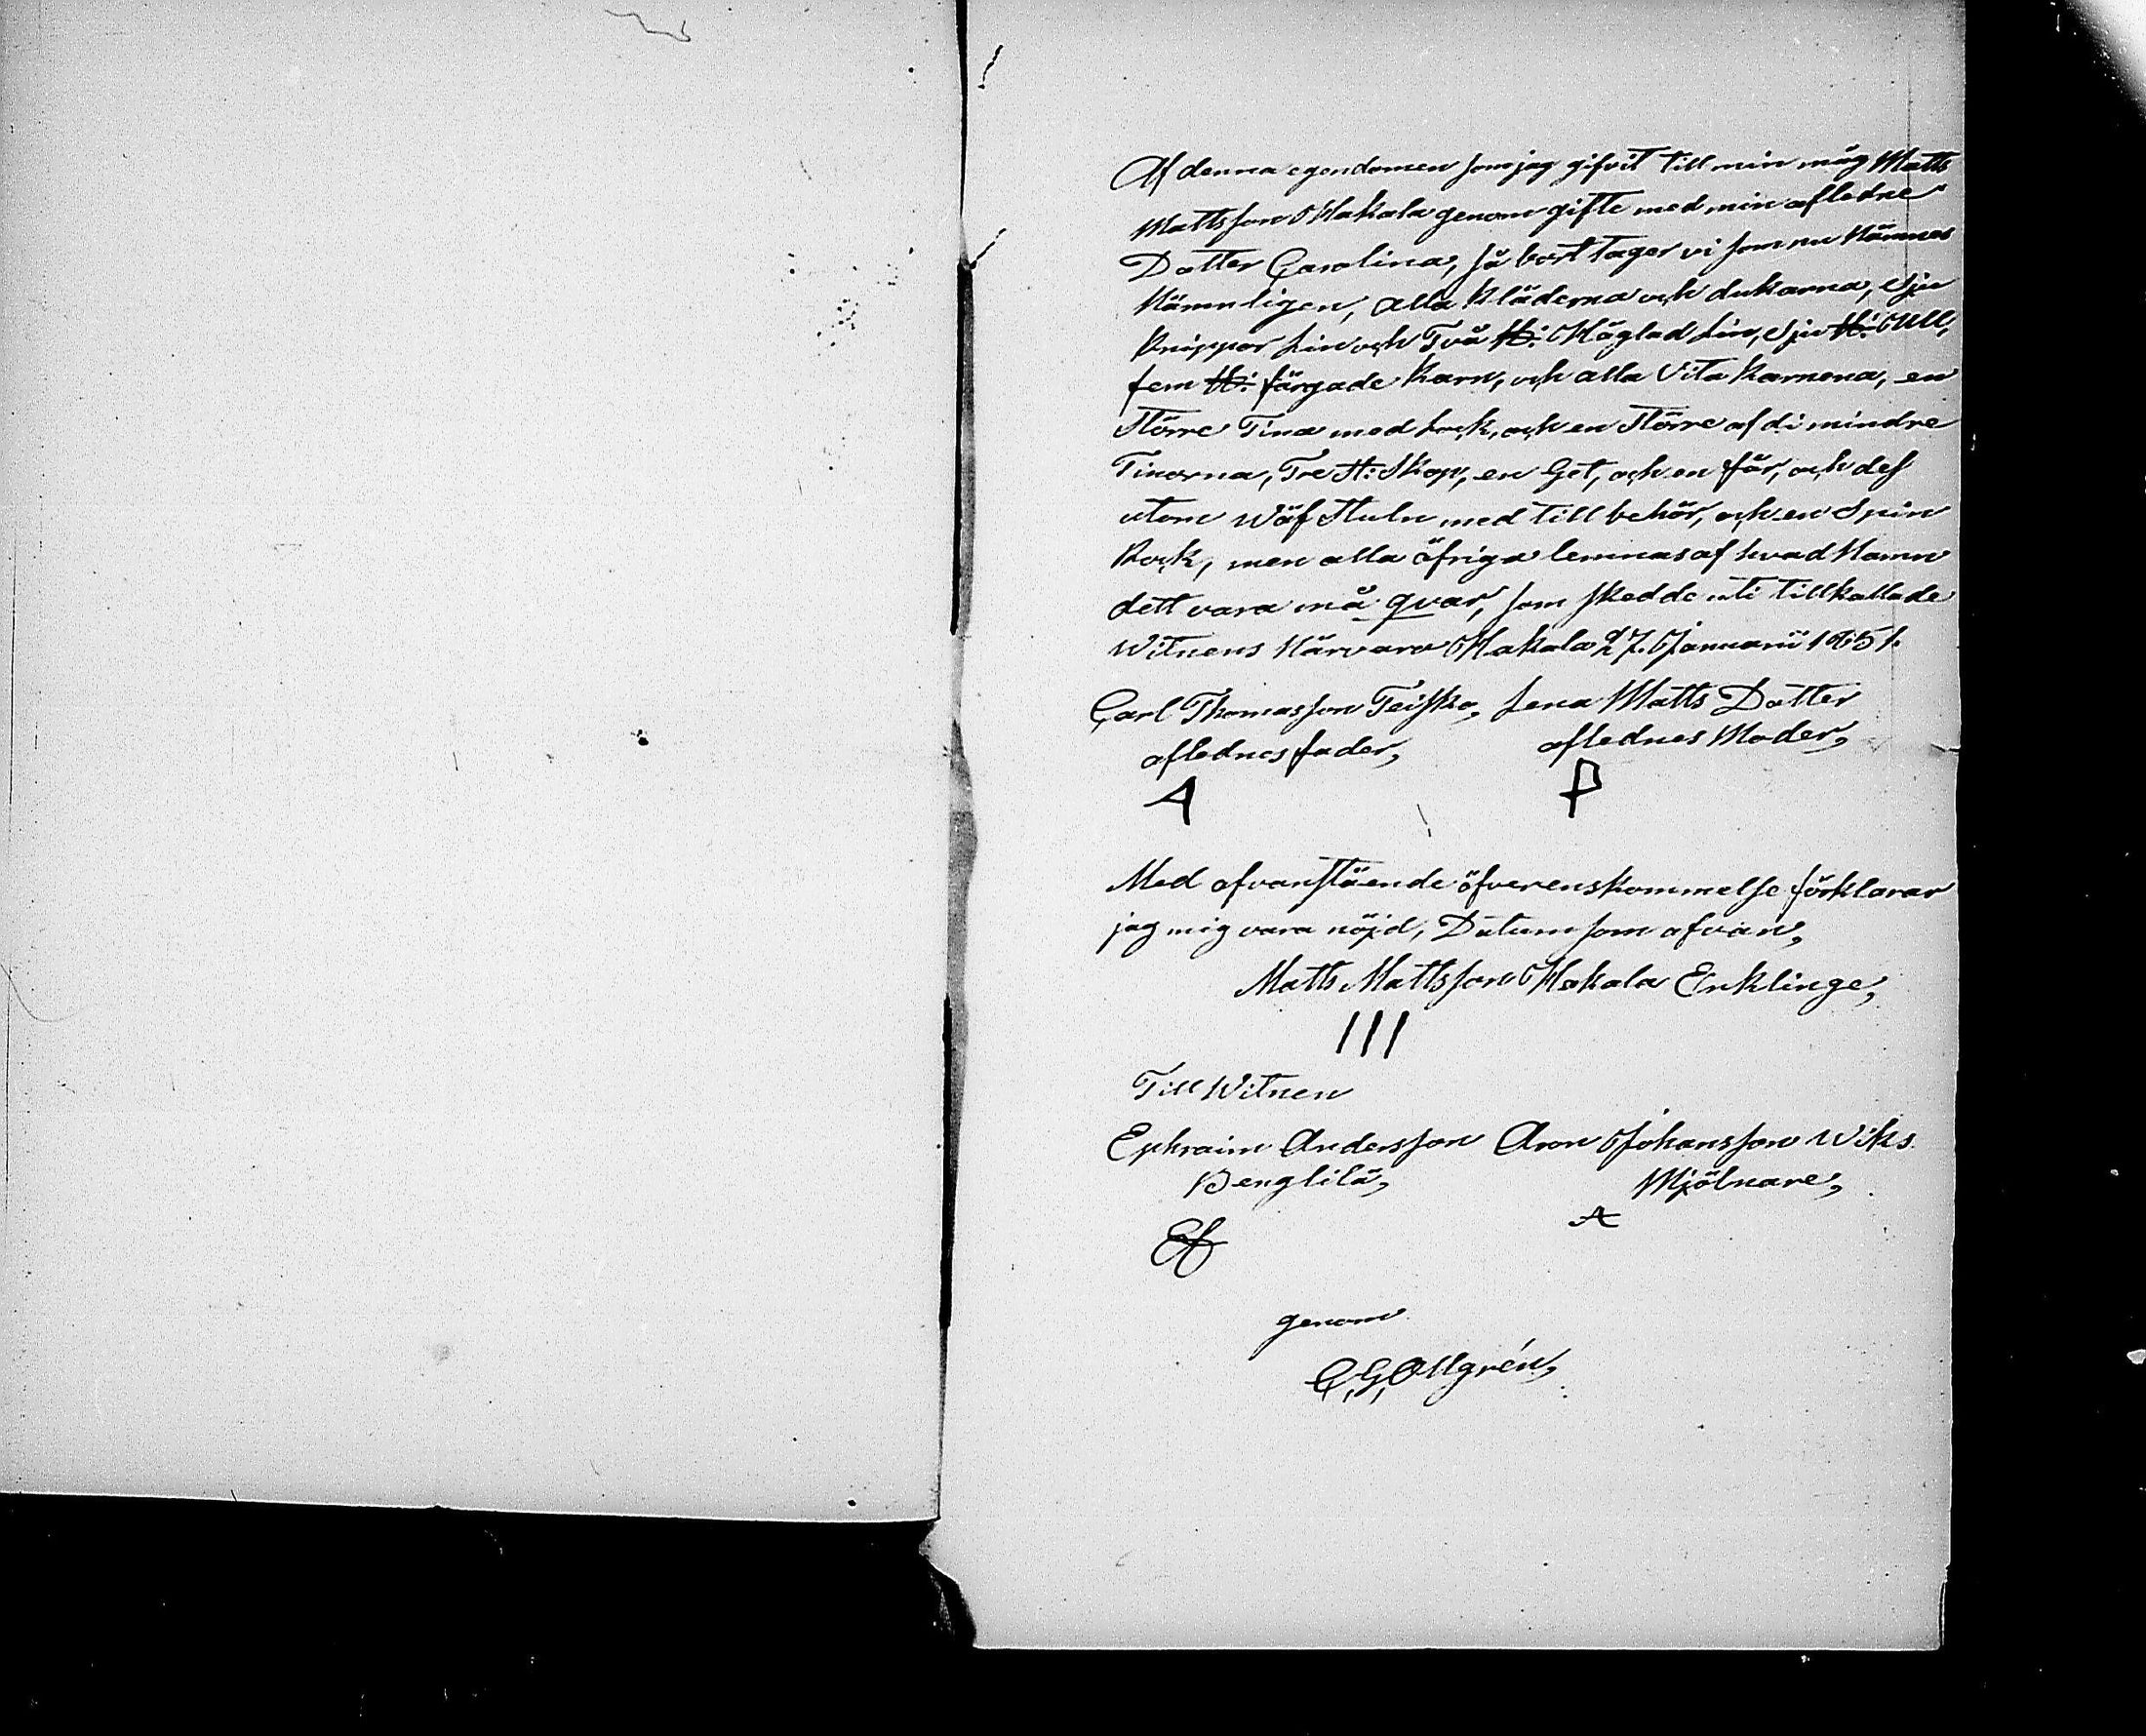 Af denna egendomen som jag gifvit till min måg Matts
Mattsson Hakala genom gifte med min afledne
Dotter Carolina, så borttager vi som nu Nämnes
Nämnligen, alla Kläderna och dukarna, Sju
Knippor Lin och Två ℔: Häglad Lin, Sju ℔: Ull,
fem ℔: färgade Karn, och alla Vita Karnena, en
Större Tina med Lock, och en Större af di mindre
Tinorna, Tre St: Skop, en Get, och en får, och des
utom Wäf Stuln med tillbehör, och en Spin
Rock, men alla öfriga lemnas af hvad Namn
dett vara må qvar, som skedde uti tillkallade
Witnens Närvaro Hakala 27. Januarii 1851.
Carl Thomasson Teisko, Lena Matts Dotter
aflednes fader, aflednes Moder,
A P
Med ofvanstående öfverenskommelse förklarar
jag mig vara nöjd, Datum som ofvan,
Matts Mattsson Hakala Enklinge,
III
Till Witnen
Ephraim Andersson Aron Johansson Wiks
Benglilä, Mjölnare,
A
genom
C, G, Ollgrén,